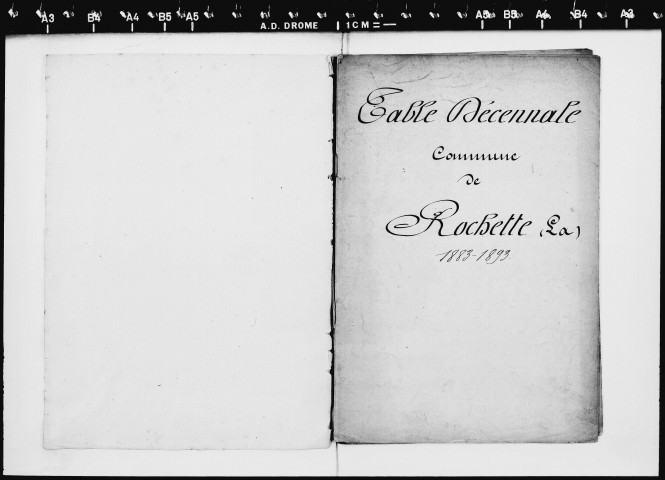 A3 B4 A4 B5 A5 A5 B5 A4 B4 A3
A.D. DROME 1CM
Table Décennale
Commune
de
Rochette (La)
1883-1893